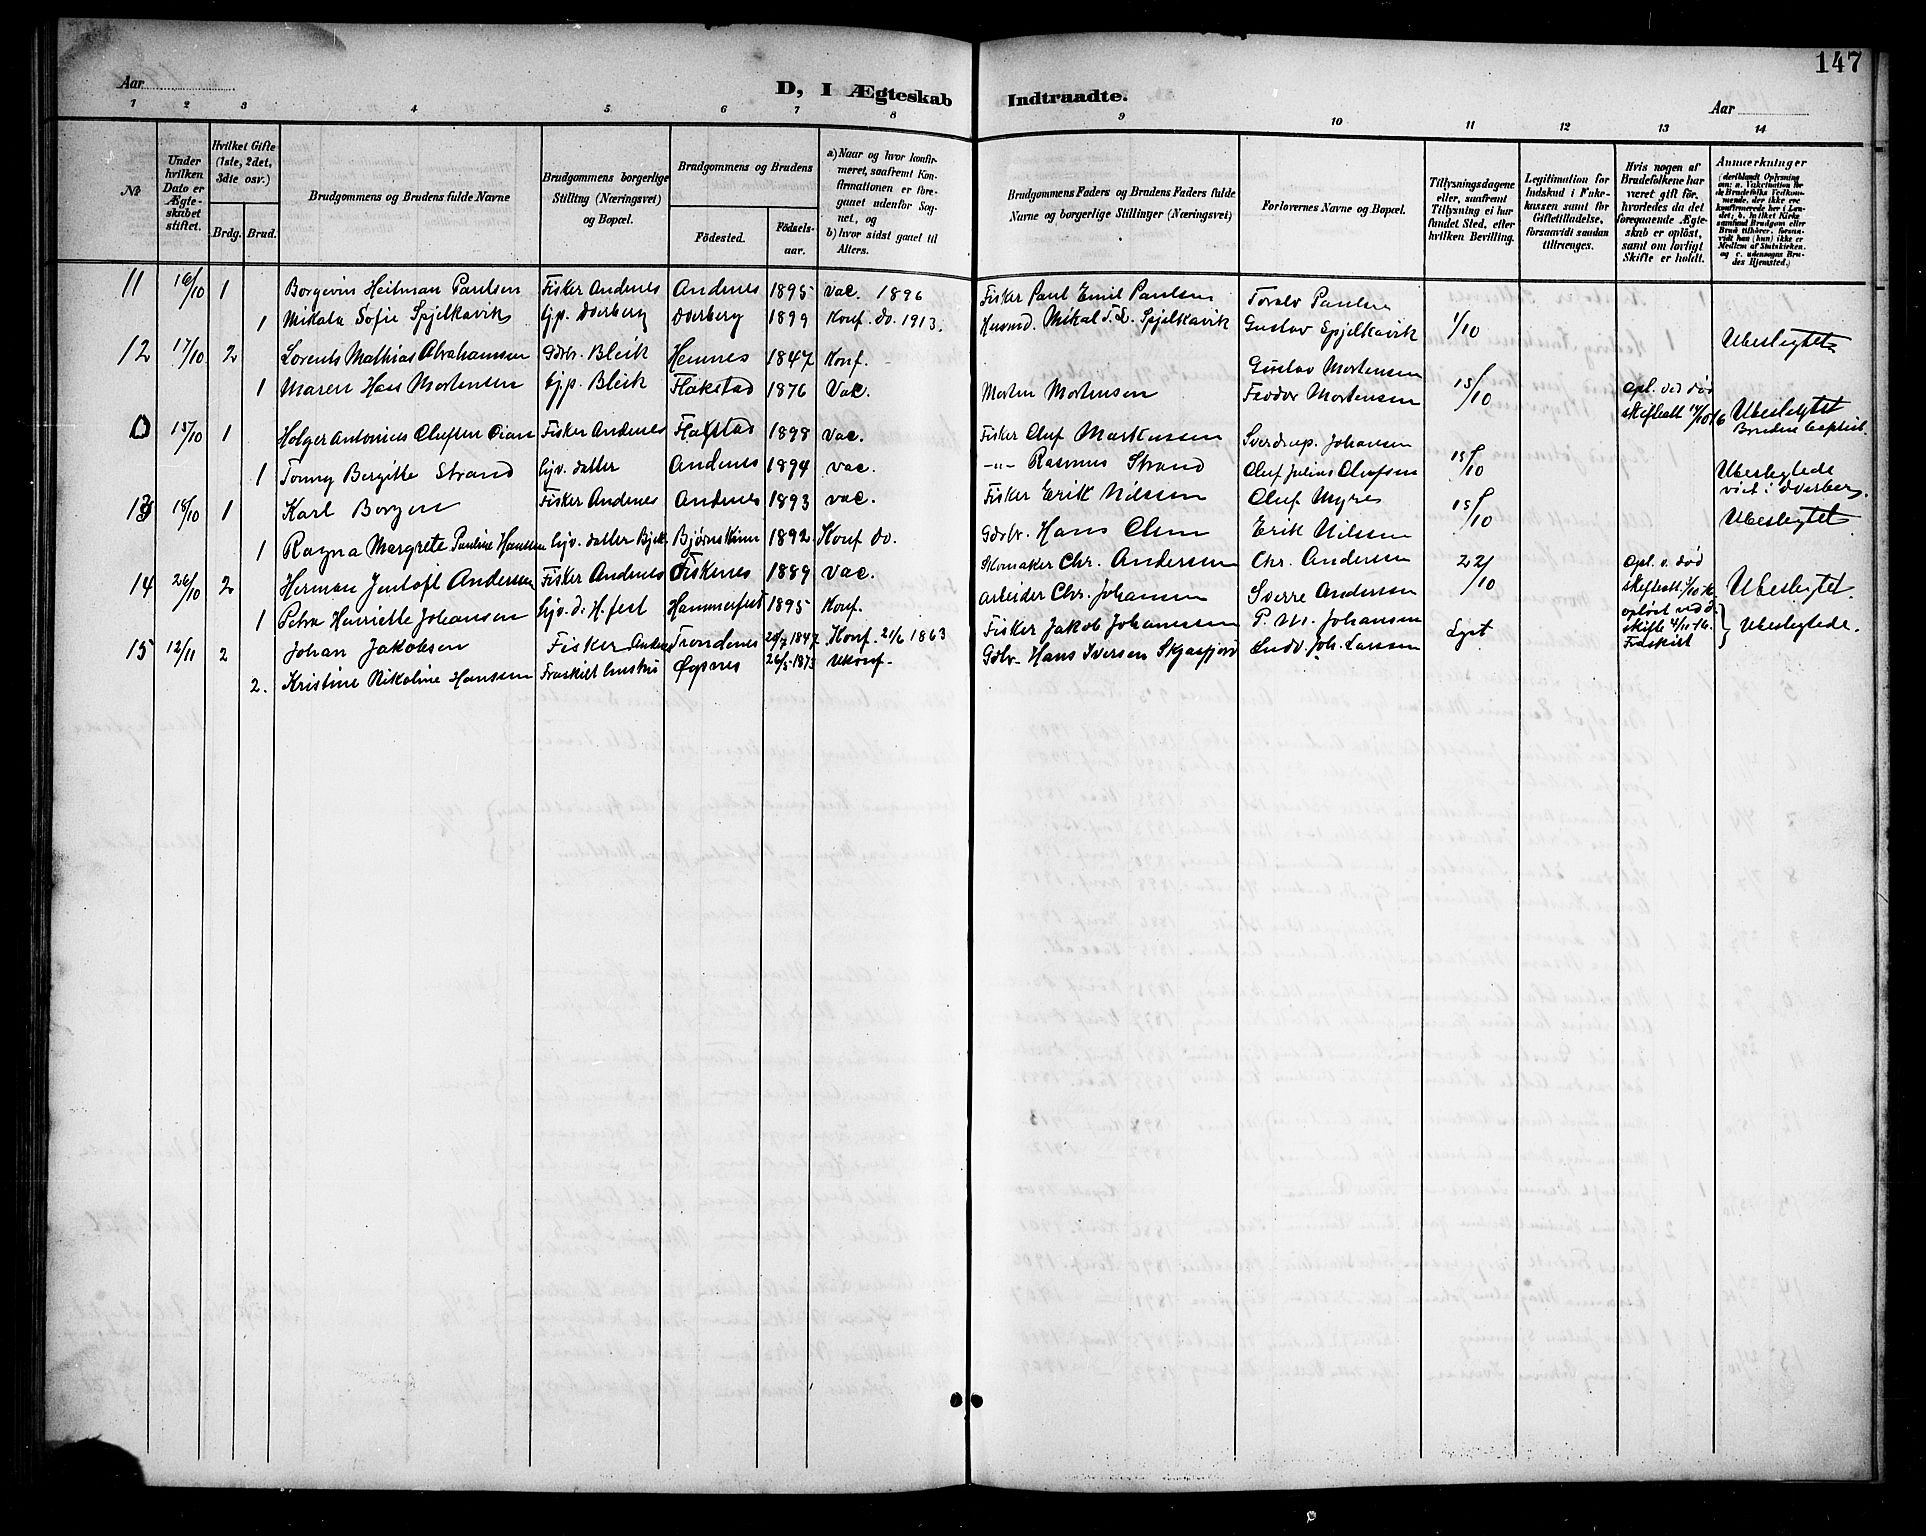 147
Aar
D, I Ægteskab Indtraadte.
Aar
1 2 3 4 5 6 7 8 9 10 11 12 13 14
No
Under hvilken Dato er Ægteskabet stiftet.
Hvilket Gifte (1ste, 2det, 3die osv.)
Brdg. Brud.
Brudgommens og Brudens fulde Navne
Brudgommens borgerlige Stilling (Næringsvei) og Bopæl.
Brudgommens og Brudens
Fødested. Fødselsaar.
a) Naar og hvor konfirmeret, saafremt Konfirmationen er foregaaet udenfor Sognet, og
b) hvor sidst gaaet til Alters.
Brudgommens Faders og Brudens Faders fulde Navne og borgerlige Stillinger (Næringsvei)
Forlovernes Navne og Bopæl.
Tillysningsdagene eller, saafremt Tillysning ei har fundet Sted, efter hvilken Bevilling.
Legitimation for Indskud i Enkekassen samt for Giftetilladelse, forsaavidt saadan tiltrænges.
Hvis nogen af Brudefolkene har været gift før, hvorledes da det foregaaende Ægteskab er opløst, samt om lovligt Skifte er holdt.
Anmærkninger
11 16/10 1 Borgevin Heitman Paulsen Fisker Andenes Andenes 1895 Vac. 1896 Fisker Paul Emil Paulsen Toralv Paulsen
1 Mikala Sofie Spjelkavik Gjp. Dverberg Dverberg 1899 Konf. do. 1913. Husmd. Mikal T. L. Spjelkavik Gustav Spjelkavik 1/10 Ubeslegtet
12 17/10 2 Lorents Mathias Abrahamsen Gdbr. Bleik Hemnes 1847 Konf. - Gustav Mortensen
1 Maren Hass Mortensen Gjp. Bleik Flakstad 1876 Vac. Morten Mortensen Feodor Mortensen 15/10 opl. ved død
0 15/10 1 Holger Antonius Olufsen Oian Fisker Andenes Flakstad 1898 Vac. Fisker Oluf Markussen Sverdrup Johansen Ubeslegtet
1 Tonny Bergitte Strand Gjv. datter Andenes 1894 Vac. -"- Rasmus Strand Oluf Julius Olufsen 15/10 Ubeslegtede viet i Dverberg.
13 18/10 1 Karl Borgen Fisker Andenes Andenes 1893 vac. Fisker Erik Nilssen Oluf Myres 15/10
1 Ragna Margrete Pauline Hanssen Gjv. datter Bjørnskinn 1892 Konf do. Gdbr. Hans Olsen Erik Nilssen Ubeslegtet
14 26/10 2 Herman Jentoft Andersen Fisker Andenes Fiskenes 1889 Vac. Skomaker Chr. Andersen Chr. Andersen 22/10 opl. v. død
1 Petra Henriette Johansen Gjv. d. H.fest Hammerfest 1895 Konf. Arbeider Chr. Johansen Sverre Andersen Ubeslegtet.
15 12/11 2 Johan Jakobsen Fisker Andenes Trondenes 20/7 1847 Konf. 21/6 1863 Fisker Jakob Johanssen P. M. Johansen Lyst Ubeslegtede.
2. Kristine Nikoline Hanssen Fraskilt hustru Øxsnes 26/5-1873 Ukonf. Gdbr. Hans Iversen Skjasfjord Ludv. Joh. Larssen Fraskilt